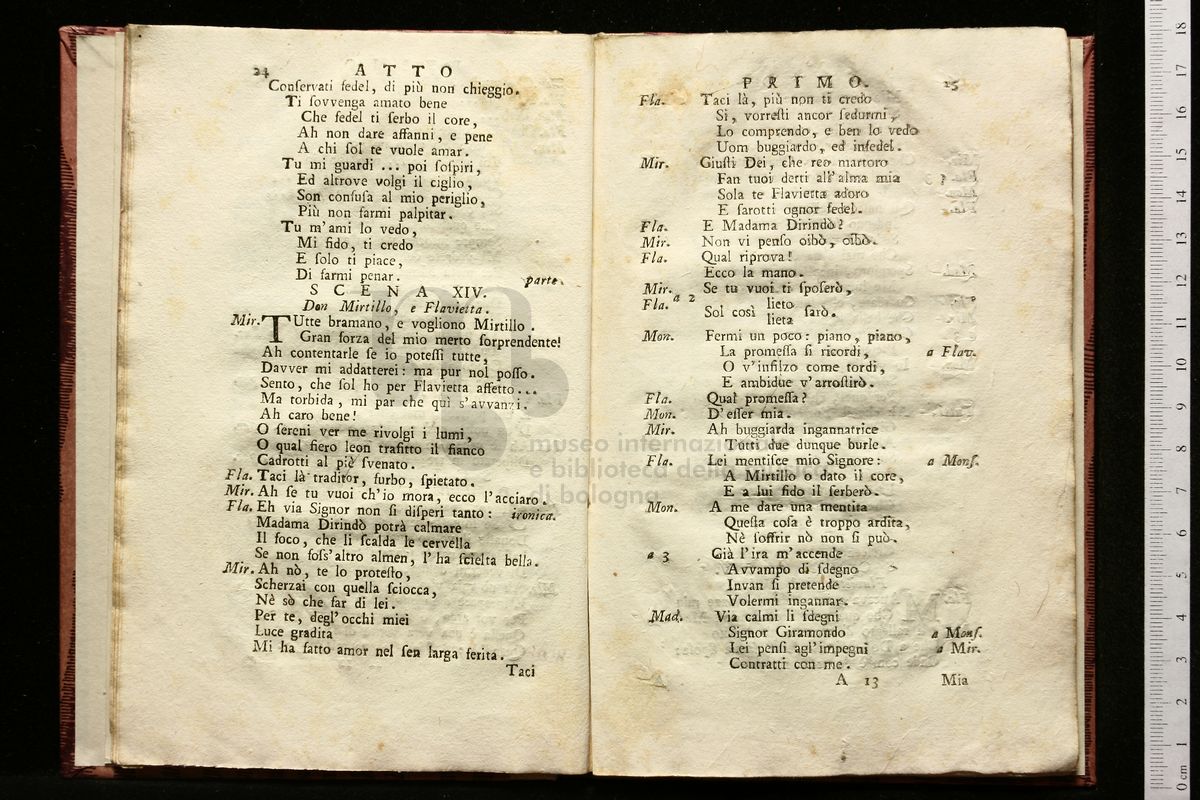 24 ATTO
Conſervati fedel, di più non chieggio.
Ti ſovvenga amato bene
Che fedel ti ſerbo il core,
Ah non dare affanni, e pene
A chi ſol te vuole amar.
Tu mi guardi ... poi ſoſpiri,
Ed altrove volgi il ciglio,
Son confuſa al mio periglio,
Più non farmi palpitar.
Tu m'ami lo vedo,
Mi fido, ti credo
E ſolo ti piace,
Di farmi penar. parte.
SCENA XIV.
Don Mirtillo, e Flavietta.
Mir. TUtte bramano, e vogliono Mirtillo.
Gran forza del mio merto ſorprendente!
Ah contentarle ſe io poteſſi tutte,
Davver mi addatterei: ma pur nol poſſo.
Sento, che ſol ho per Flavietta affetto...
Ma torbida, mi par che quì s'avvanzi.
Ah caro bene!
O ſereni ver me rivolgi i lumi,
O qual fiero leon trafitto il fianco
Cadrotti al piè ſvenato.
Fla. Taci là traditor, furbo, ſpietato.
Mir. Ah ſe tu vuoi ch'io mora, ecco l'acciaro.
Fla. Eh via Signor non ſi diſperi tanto: ironica.
Madama Dirindò potrà calmare
Il foco, che li ſcalda le cervella
Se non foſs'altro almen, l'ha ſcielta bella.
Mir. Ah nò, te lo proteſto,
Scherzai con quella ſciocca,
Nè sò che far di lei.
Per te, degl'occhi miei
Luce gradita
Mi ha fatto amor nel ſen larga ferita.
Taci
PRIMO. 25
Fla. Taci là, più non ti credo
Sì, vorreſti ancor ſedurmi,
Lo comprendo, e ben lo vedo
Uom buggiardo, ed infedel.
Mir. Giuſti Dei, che reo martoro
Fan tuoi detti all'alma mia
Sola te Flavietta adoro
E ſarotti ognor fedel.
Fla. E Madama Dirindò?
Mir. Non vi penſo oibò, oibò.
Fla. Qual riprova!
Ecco la mano.
Mir. Se tu vuoi ti ſpoſerò,
Fla. a 2 Sol così lieto lieta ſarò.
Mon. Fermi un poco: piano, piano,
La promeſſa ſi ricordi, a Flav.
O v'infilzo come tordi,
E ambidue v'arroſtirò.
Fla. Qual promeſſa?
Mon. D'eſſer mia.
Mir. Ah buggiarda ingannatrice
Tutti due dunque burle.
Fla. Lei mentiſce mio Signore: a Monſ.
A Mirtillo o dato il core,
E a lui fido il ſerberò.
Mon. A me dare una mentita
Queſta coſa è troppo ardita,
Nè ſoffrir nò non ſi può.
a 3 Già l'ira m'accende
Avvampo di ſdegno
Invan ſi pretende
Volermi ingannar.
Mad. Via calmi li ſdegni
Signor Giramondo a Monſ.
Lei penſi agl'impegni a Mir.
Contratti con me.
A 13 Mia
museo internazionale
e biblioteca della musica
di bologna
0 cm 1 2 3 4 5 6 7 8 9 10 11 12 13 14 15 16 17 18